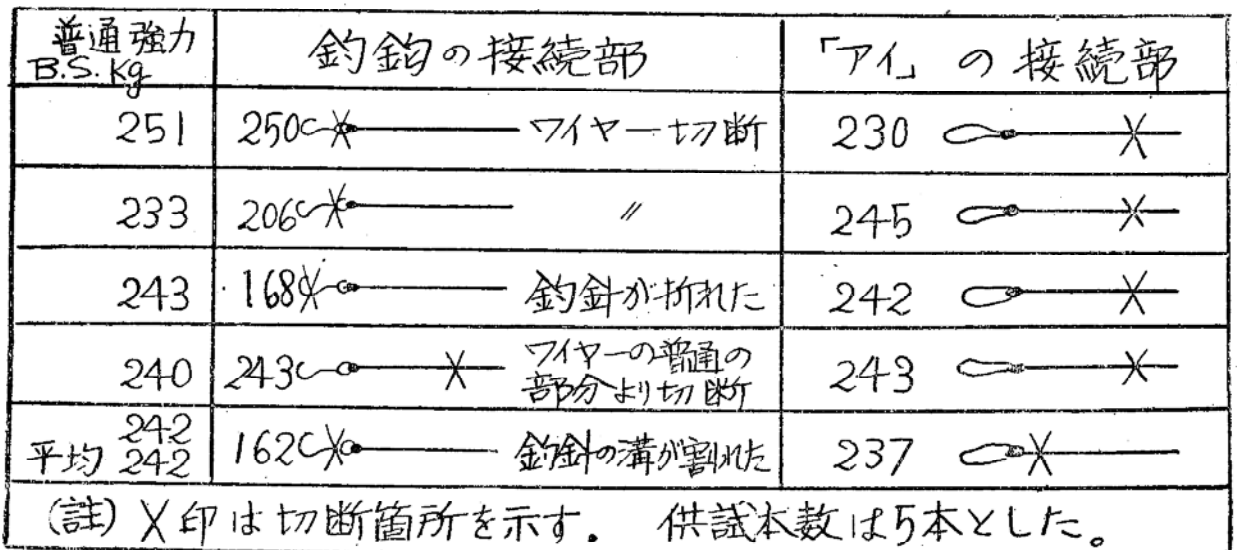 普通強力 釣鈎の接続部 「アイ」の接続部
B.S. Kg
251 250 ワイヤー切断 230
233 206 〃 245
243 168 釣針が折れた 242
240 243 ワイヤーの普通の部分より切断 243
242
平均 242 162 釣針の溝が割れた 237
(註) X印は切断箇所を示す. 供試本数は5本とした。